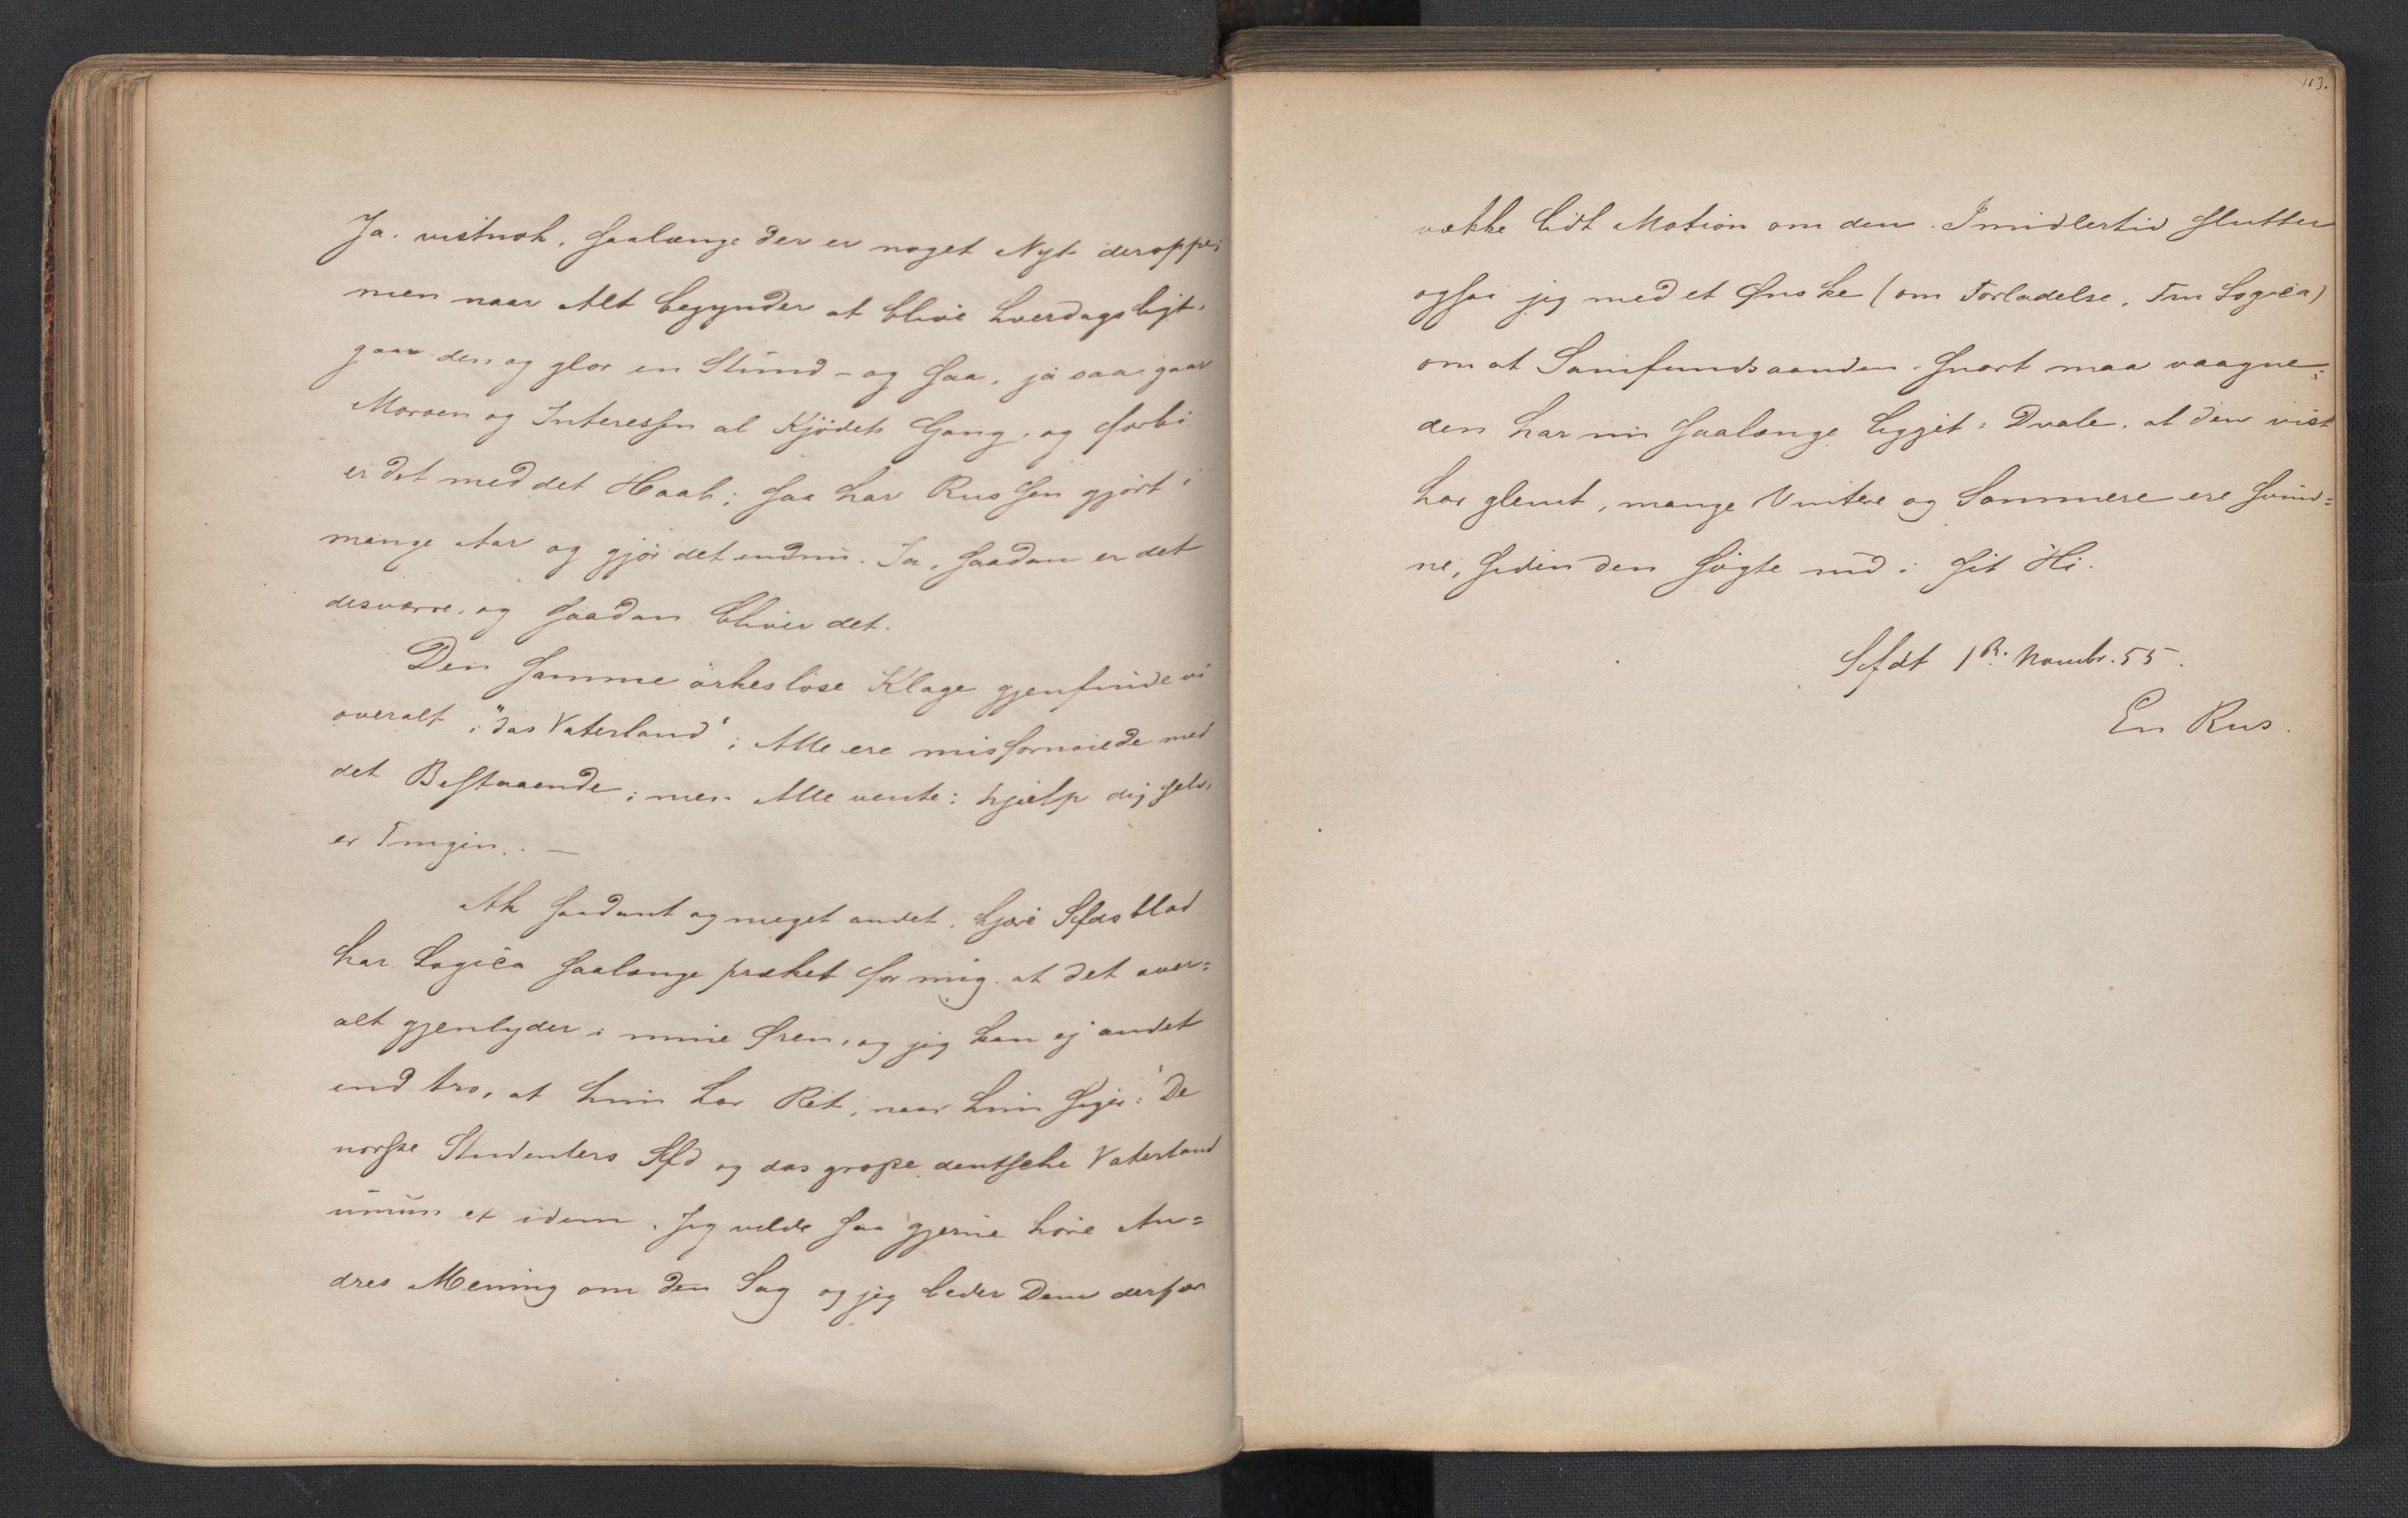 Ja. vistnok, saalænge der er noget Nyt deroppe;
men naar Alt begynder at blive hverdagsligt,
gaar den og glor en Stund - og saa, ja saa gaar
Moroen og Interessen al Kjødets Gang, og forbi
er det med det Haab; saa har Russen gjort i
mange Aar og gjør det endnu. Ja, saadan er det
desværre, og saadan bliver det.
Den samme ørkesløse Klage gjenfinde vi
overalt i "das Vaterland"; Alle ere misfornøiede med
det Bestaaende; men Alle vente; hjælp dig selv,
er Tingen. . —
Ak saadant og meget andet, kjære Sfdsblad
har Logica saalænge præket for mig, at det over=
alt gjenlyder i mine Øren, og jeg kan ej andet
end tro, at hun har Ret, naar hun siger: "De
norske Studenters Sfd og das große deutsche Vaterland
unum et idem. Jeg vilde saa gjerne høre An=
dres Mening om den Sag og jeg beder Dem derfor
113.
vække lidt Motion om den. Imidlertid slutter
ogsaa jeg med et Ønske (om Forladelse, Fru Logica)
om at Samfundsaanden snart maa vaagne;
den har nu saalænge ligget i Dvale, at den vist
har glemt, mange Vintere og Sommere ere svund=
ne, siden den søgte ind i sit Hi.
Sfdt 1ste Novembr. 55.
En Rus.